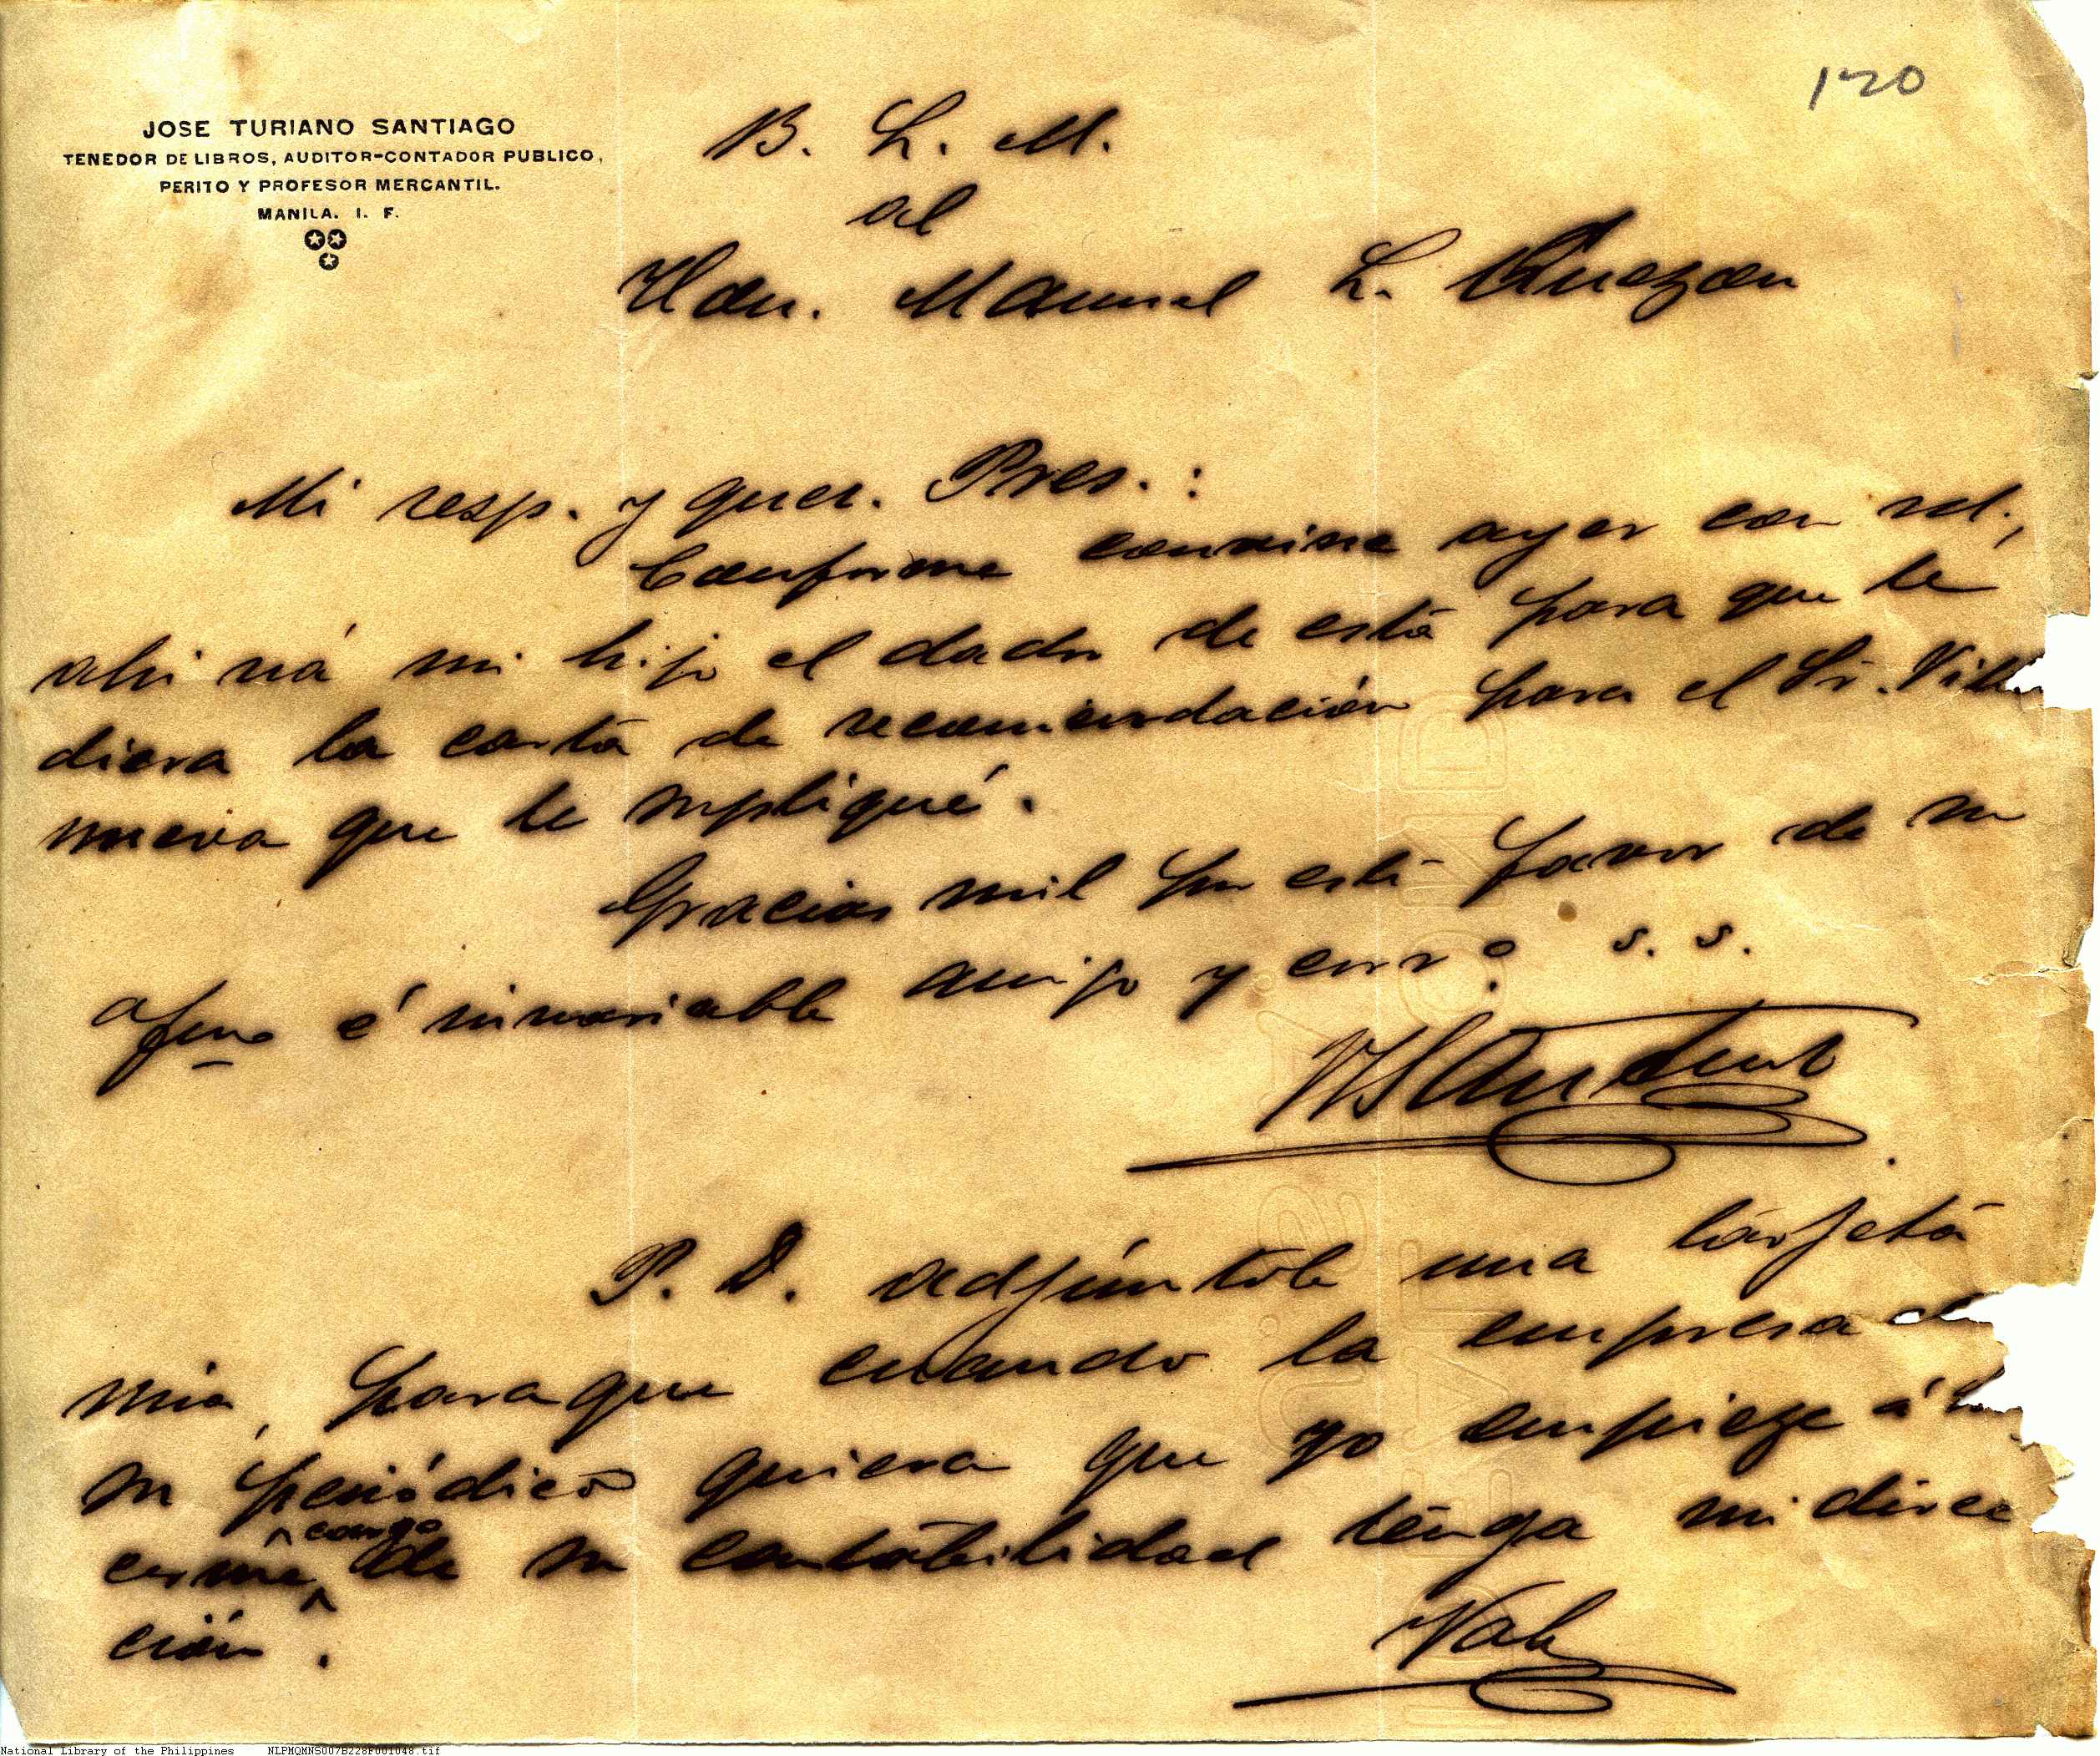 120
JOSE TURIANO SANTIAGO
TENEDOR DE LIBROS, AUDITOR-CONTADOR PUBLICO,
PERITO Y PROFESOR MERCANTIL.
MANILA. I. F.
B. L. M.
al
Hon. Manuel L. Quezon
Mi resp. y quer. Pres.:
Conforme convine ayer con Vd.,
ahi vá mi hijo el dador de está para que le
diera la carta de recomendación para el Sr. Villa
nueva que le supliqué.
Gracias mil por esté favor de su
afmo é invariable amigo y corro. s. s.
P. D. adjúntole una tarjeta
mia, paraque cuando la empresa de
su periódico quiera que yo empieze á
cargo
de su contabilidad tenga mi direc
ción.
Vale
National Library of the Philippines NLPMQMNS007B228F001048.tif